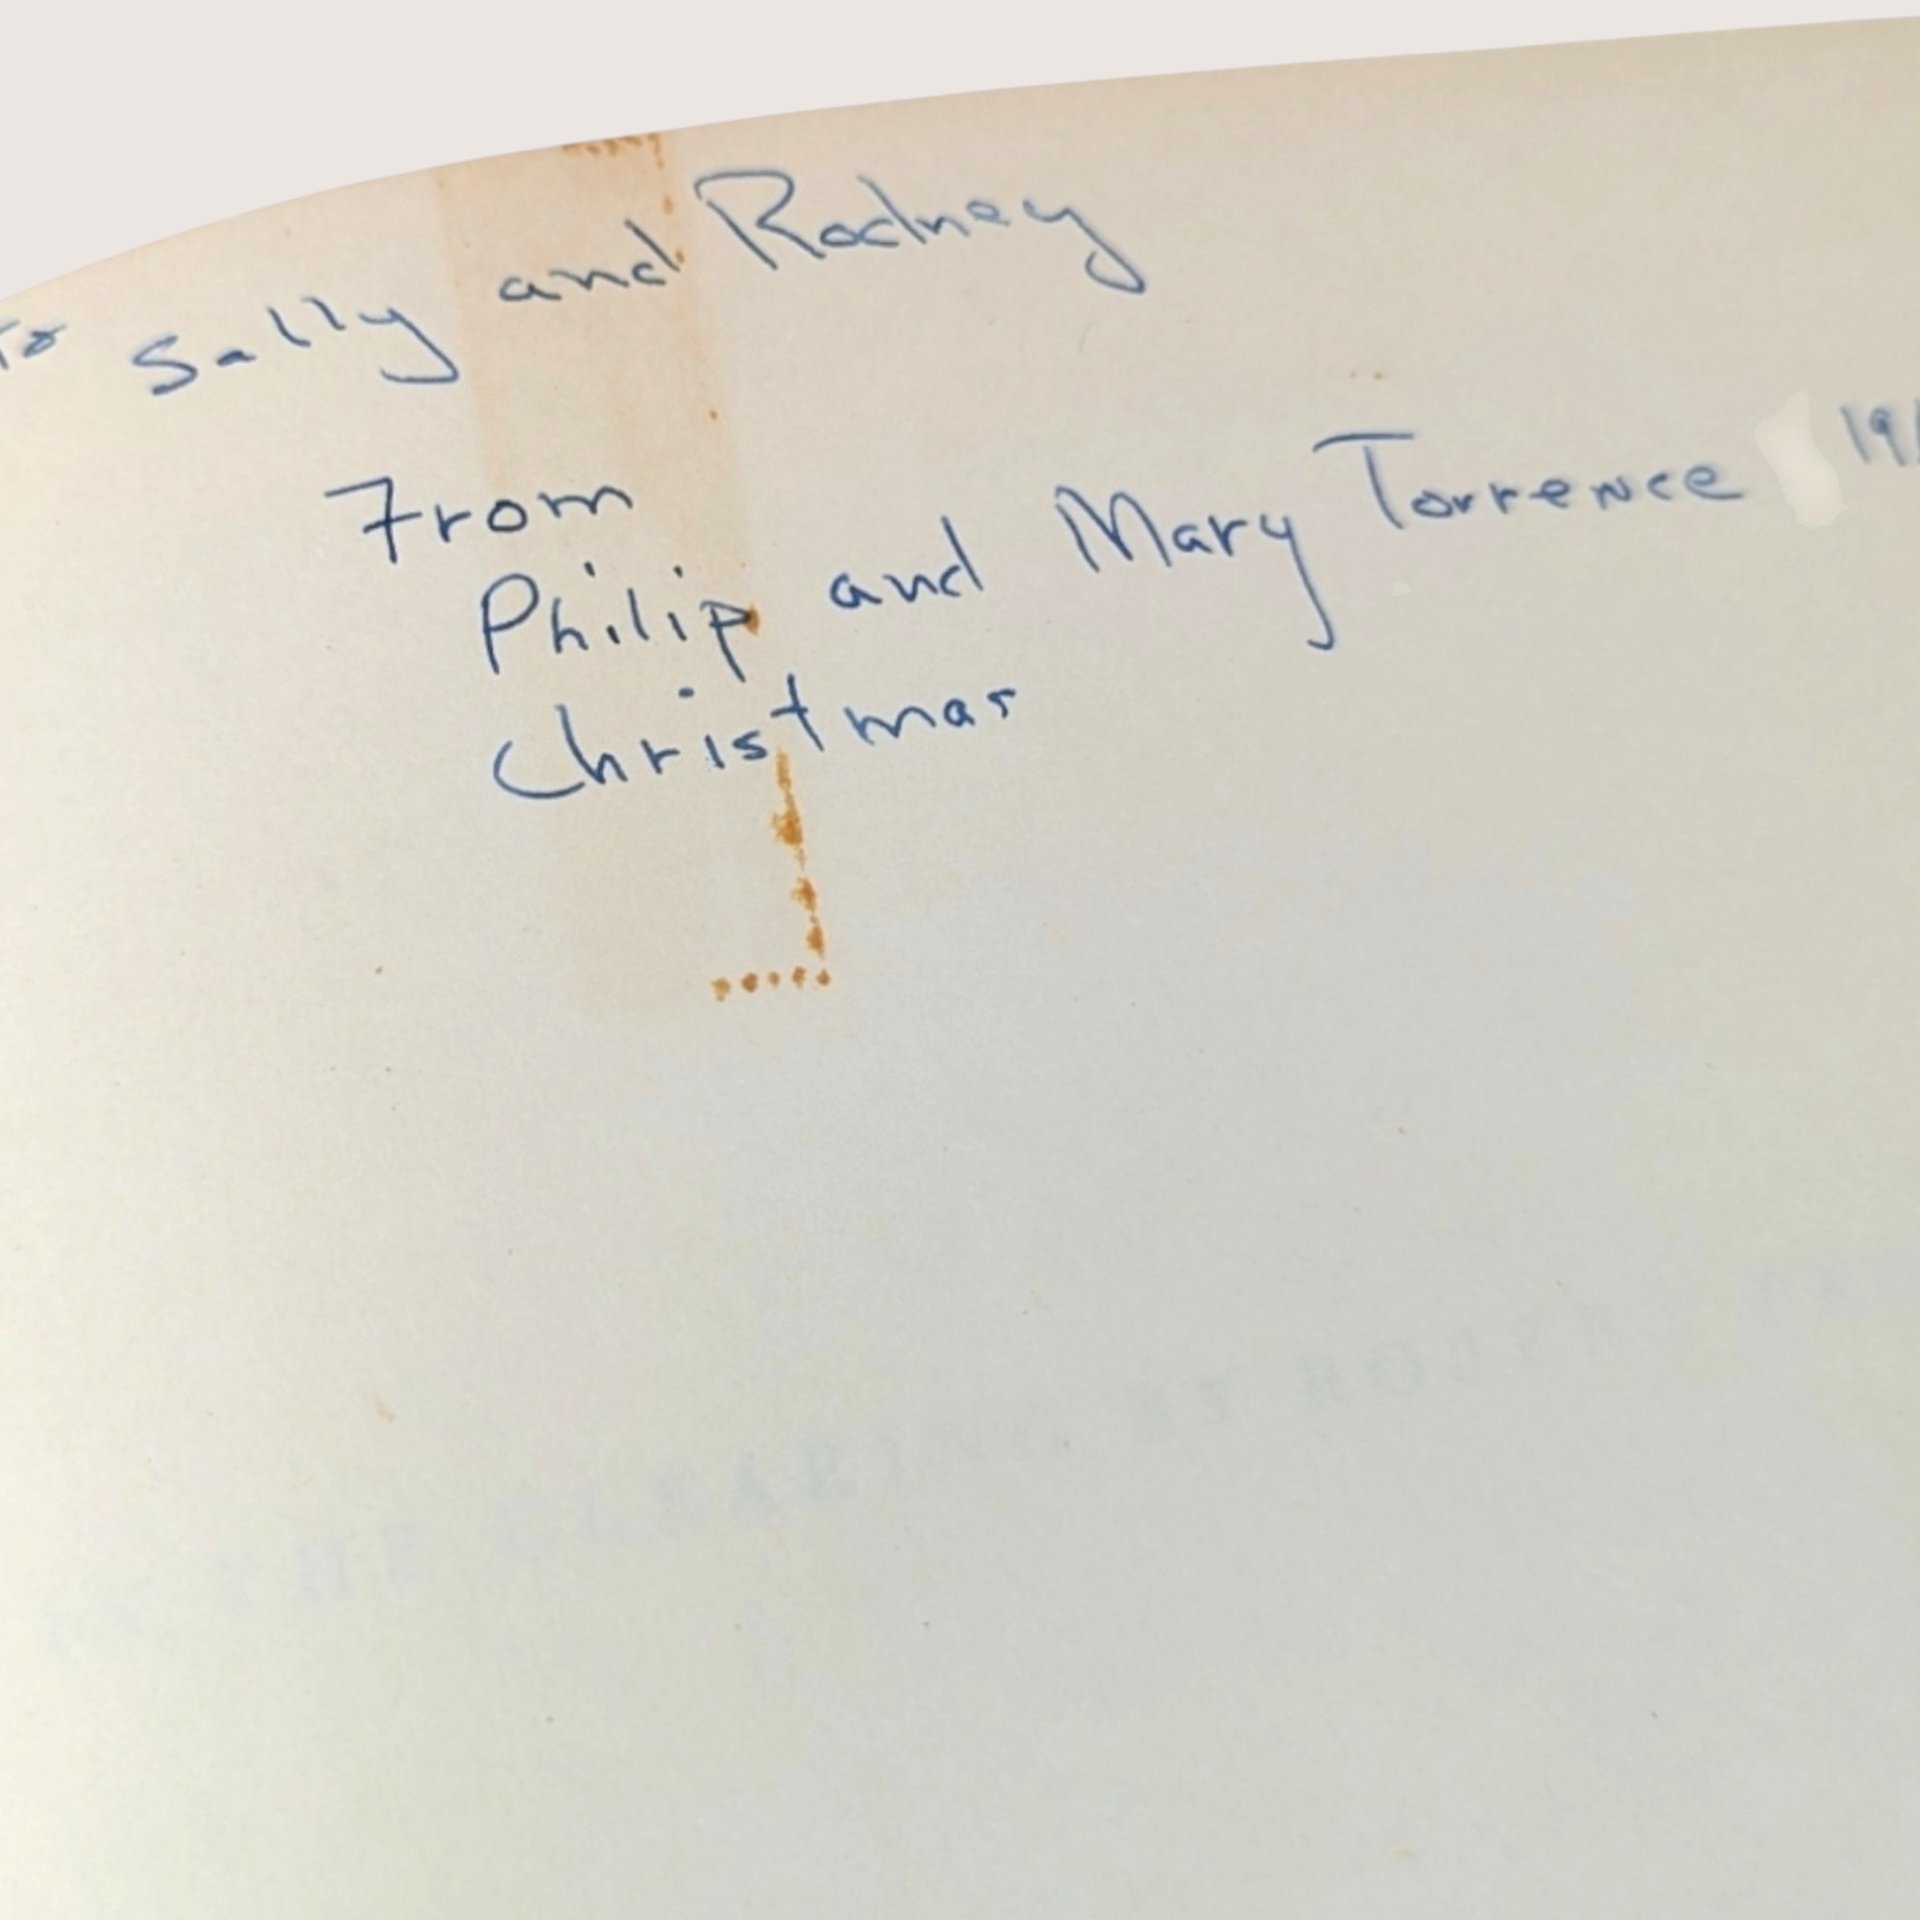 To Sally and Rodney
From
Philip and Mary Torrence
Christmas